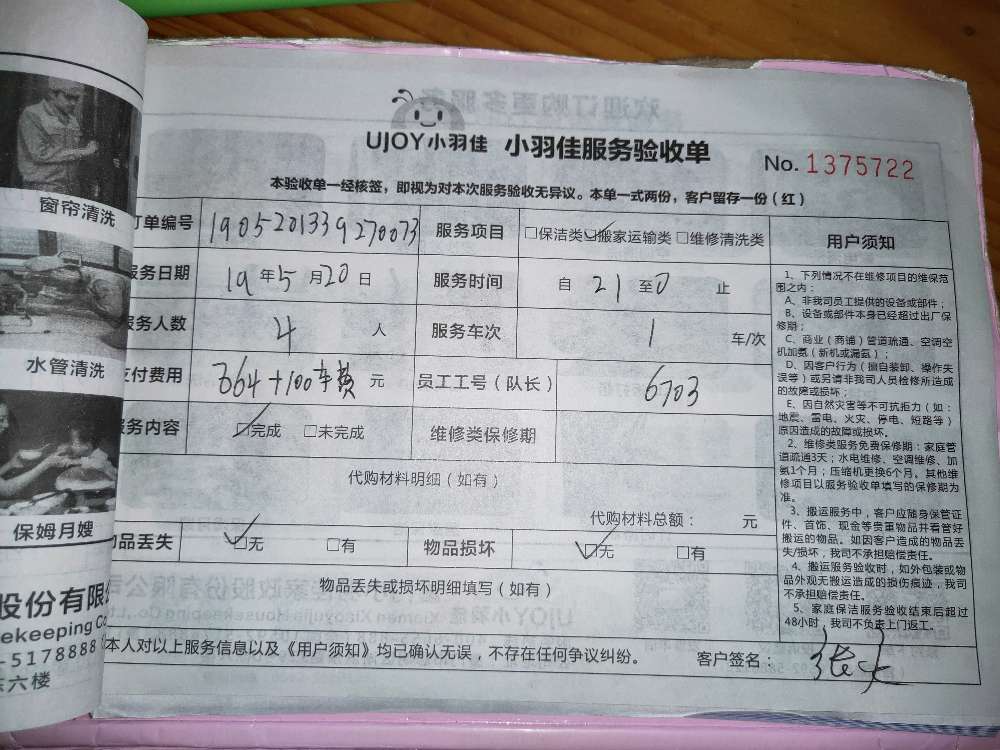 UJOY小羽佳 小羽佳服务验收单
No. 1375722
本验收单一经核签，即视为对本次服务验收无异议。本单一式两份，客户留存一份（红）
订单编号 1905201339270073 服务项目 □保洁类 ☑搬家运输类 □维修清洗类
服务日期 19 年 5 月 20 日 服务时间 自 21 至 0 止
服务人数 4 人 服务车次 1 车/次
支付费用 664+100车费 元 员工工号（队长） 6703
服务内容 ☑完成 □未完成 维修类保修期
代购材料明细（如有）
代购材料总额： 元
物品丢失 ☑无 □有 物品损坏 ☑无 □有
物品丢失或损坏明细填写（如有）
本人对以上服务信息以及《用户须知》均已确认无误，不存在任何争议纠纷。 客户签名：
用户须知
1、下列情况不在维修项目的维保范
围之内：
A、非我司员工提供的设备或部件；
B、设备或部件本身已经超过出厂保
修期；
C、商业（商诵）管道疏通、空调空
机加氨（新机或漏氨）；
D、因客户行为（擅自装卸、操作失
误等）或另请非我司人员检修所造成
的故障或损坏；
E、因自然灾害等不可抗拒力（如：
地震、雷电、火灾、停电、短路等）
原因造成的故障或损坏。
2、维修类服务免费保修期：家庭管
道疏通3天；水电维修、空调维修、加
氨1个月；压缩机更换6个月。其他维
修项目以服务验收单填写的保修期为
准。
3、搬运服务中，客户应随身保管证
件、首饰、现金等贵重物品并看管好
搬运的物品。如因客户造成的物品丢
失/损坏，我司不承担赔偿责任。
4、搬运服务验收时，如外包装或物
品外观无搬运造成的损伤痕迹，我司
不承担赔偿责任。
5、家庭保洁服务验收结束后超过
48小时，我司不负责上门返工。
窗帘清洗
水管清洗
保姆月嫂
股份有限
ekeeping Co
-5178888
六楼